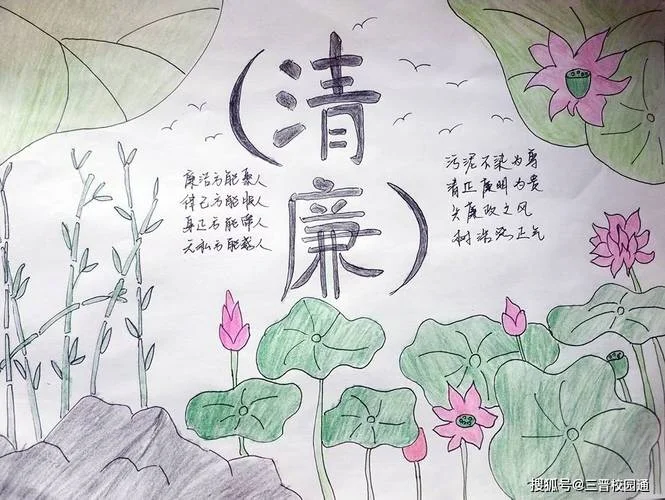 清廉
廉洁方能聚人
律己方能服人
身正方能带人
无私方能感人
污泥不染为
清正廉明为贵
兴廉政之风
树浩然正气
搜狐号@三晋校园通